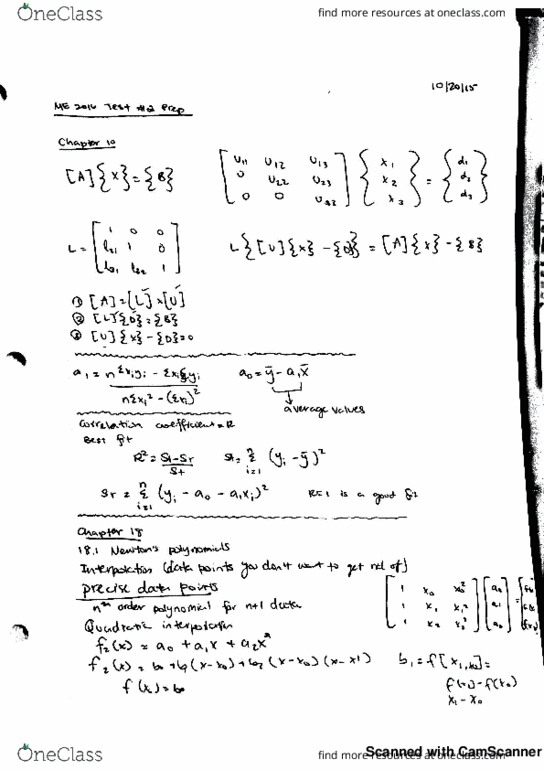 OneClass
find more resources at oneclass.com
10/20/15
ME 2016 Test #2 Prep
Chapter 10
[A]{x}={B}
[u11 u12 u13] {x1} = {d1}
[0 u22 u23] {x2} {d2}
[0 0 u33] {x3} {d3}
L = [1 0 0]
[l21 1 0]
[l31 l32 1]
L{[U]{x}-{D}} = [A]{x}-{B}
① [A]=[L]×[U]
② [L]{D}={B}
③ [U]{x}-{D}=0
a1 = nΣxiyi - ΣxiΣyi
nΣxi² - (Σxi)²
a0 = ȳ - a1x̄
average values
Correlation coefficient = R
Best fit
R² = St-Sr
St
St = Σ (yi - ȳ)²
i=1
Sr = Σ (yi - a0 - a1xi)²
n
i=1
R=1 is a good fit
Chapter 18
18.1 Newton's polynomials
Interpolation (data points you don't want to get rid of)
precise data points
nth order polynomial for n+1 data
Quadratic interpolation
[1 x0 x0²] [a0]
[1 x1 x1²] [a1] =
[1 x2 x2²]
f2(x) = a0 + a1x + a2x²
f2(x) = b0 + b1(x-x0) + b2(x-x0)(x-x1)
b1 = f[x1,x0] =
f(x1) - f(x0)
x1 - x0
= b0
OneClass
find more resources at oneclass.com
Scanned with CamScanner